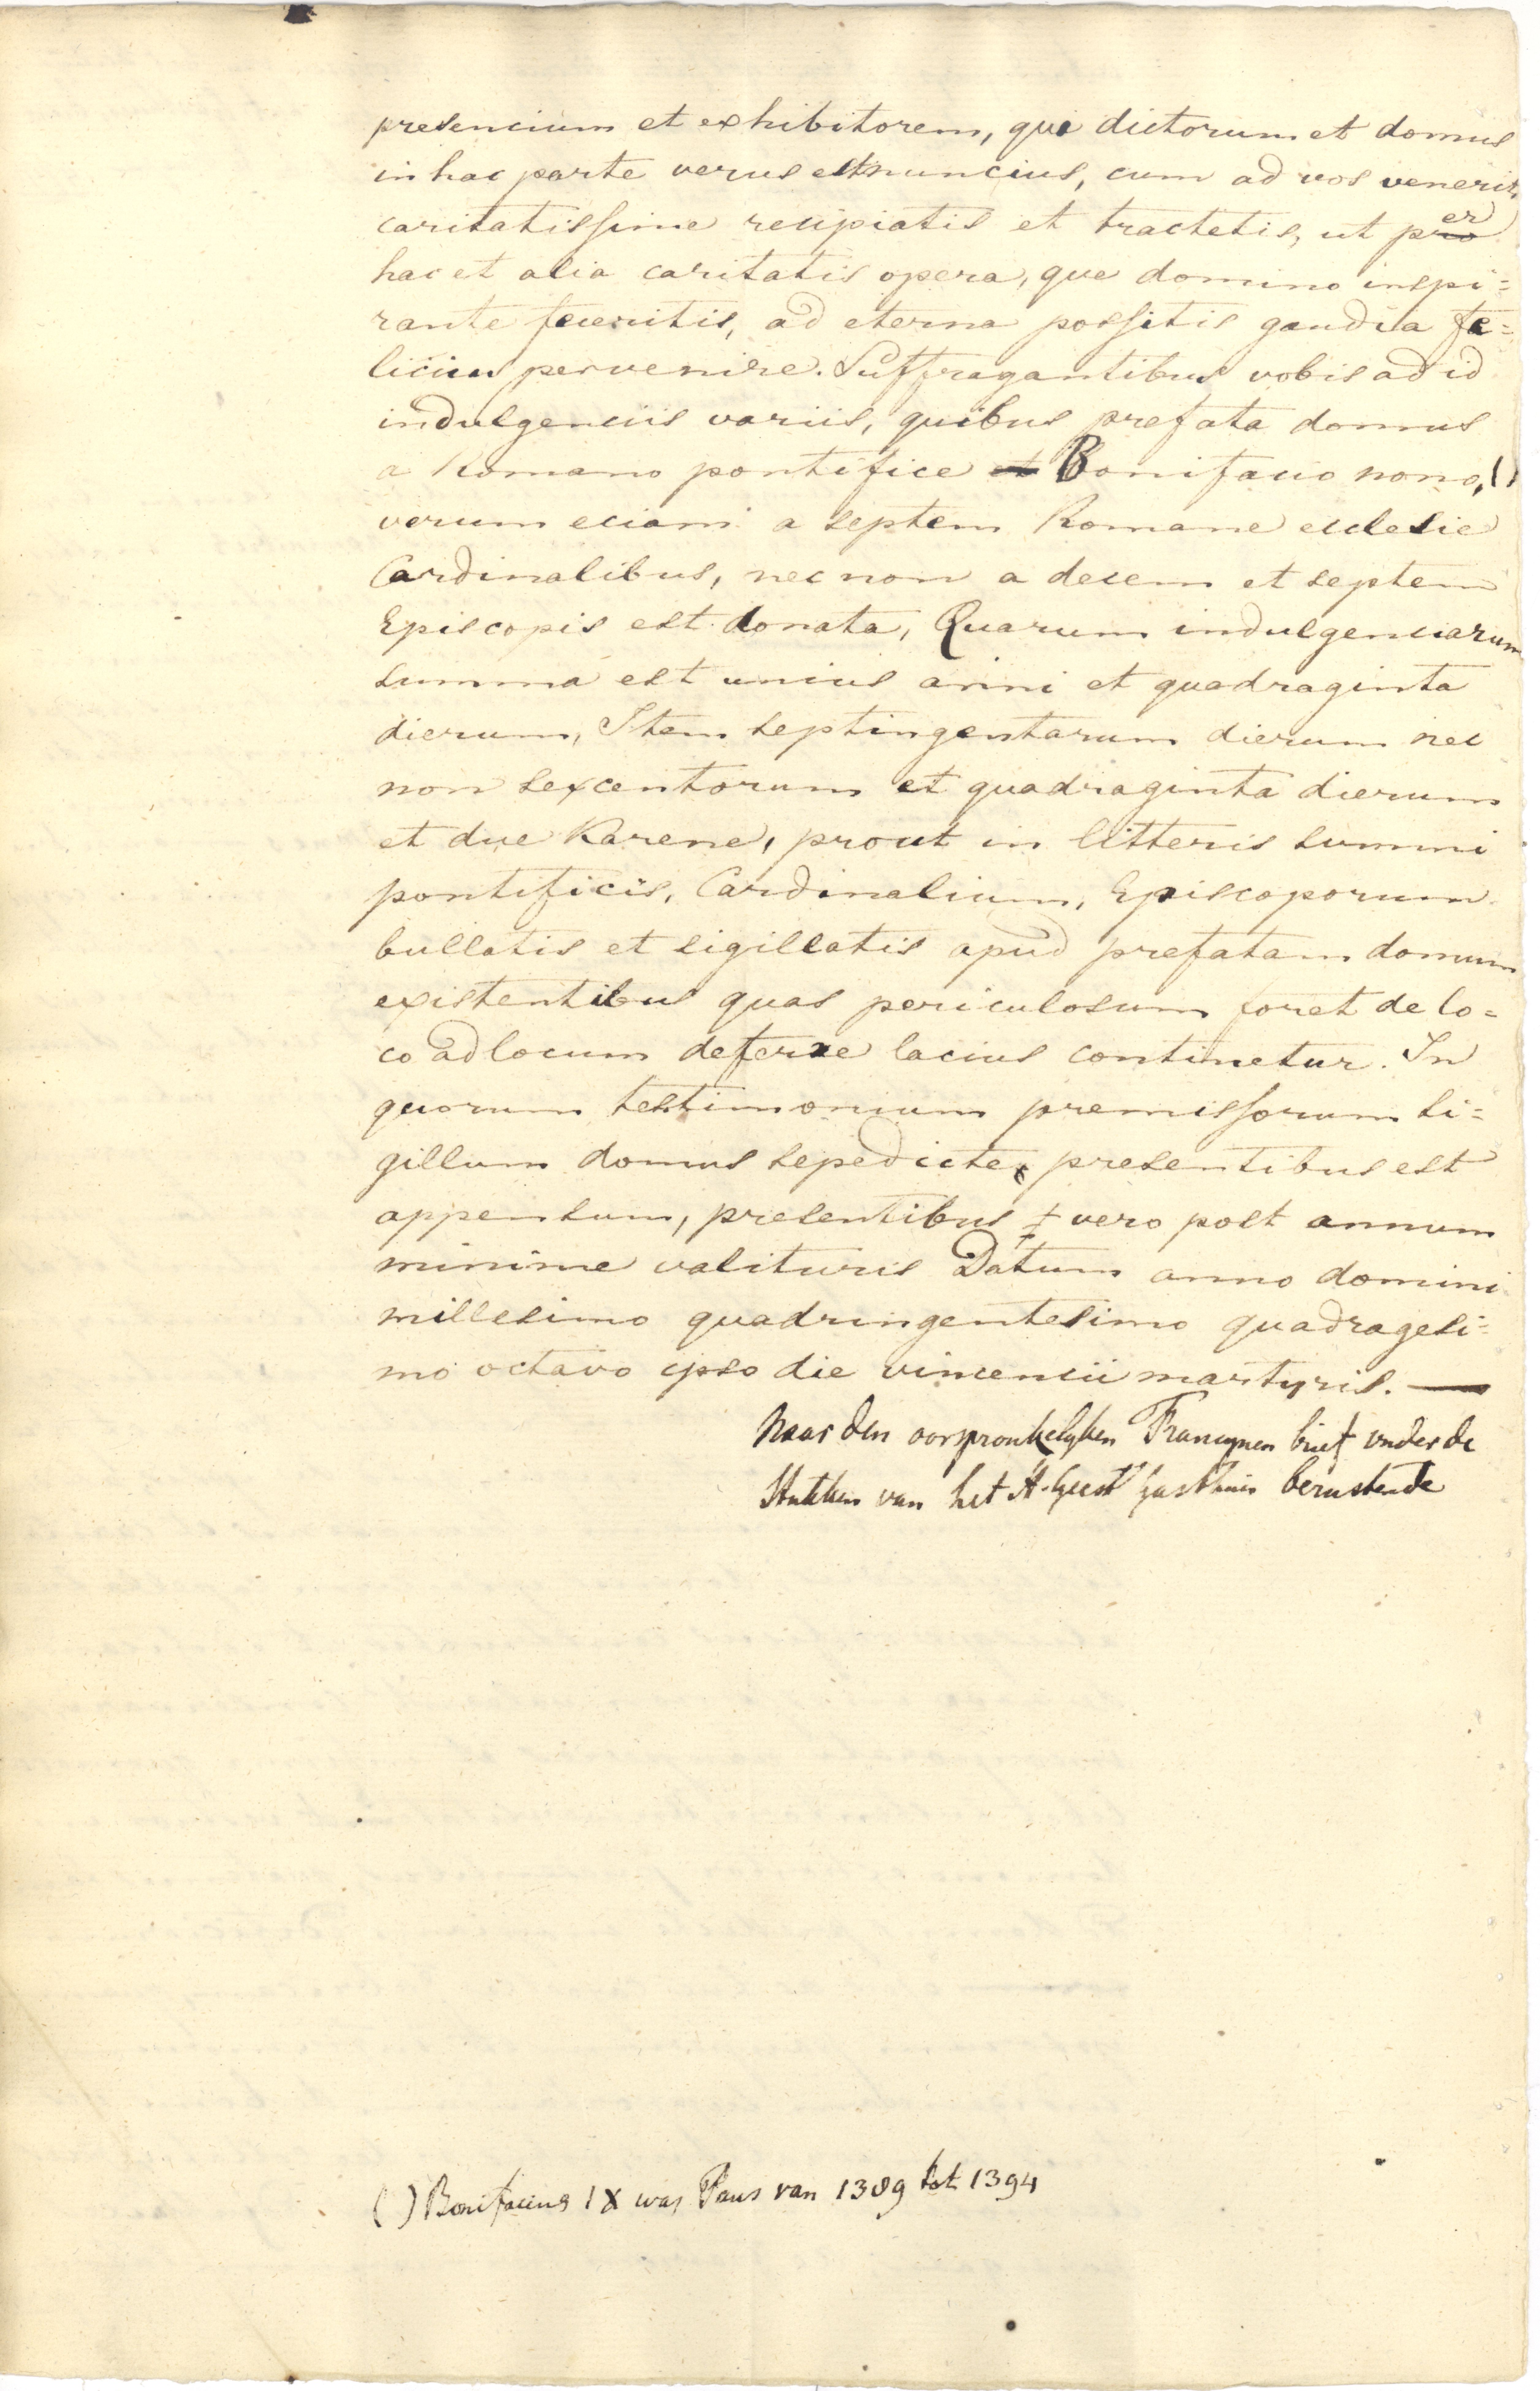 presencium et exhibitorem, qui dictorum et domus
in hac parte verus est nuncius, cum ad vos venerit,
caritatissime recipiatis et tractetis, ut per
hac et alia caritatis opera, que domino inspi=
rante feceritis, ad eterna possitis gaudia fe=
licius pervenire. Suffragantibus vobis ad id
indulgenciis variis, quibus prefata domus
a Romano pontifice et Bonifacio nono, ()
verum eciam a septem Romane ecclesie
Cardinalibus, nec non a decem et septem
Episcopis est donata, Quarum indulgenciarum
summa est unius anni et quadraginta
dierum, Item septingentarum dierum nec
non sexcentorum et quadraginta dierum
et due Karene, prout in litteris summi
pontificis, Cardinalium, Episcoporum
bullatis et sigillatis apud prefatam domum
existentibus quas periculosum foret de lo=
co ad locum deferre lacius continetur. In
quorum testimonium premissorum si=
gillum domus sepedicte presentibus est
appensum, presentibus vero post annum
minime valituris Datum anno domini
millesimo quadringentesimo quadragesi=
mo octavo ipso die vincencii martyris. —
Naar den oorspronkelyken Francynen brief onder de
Stukken van het H. Geest Gasthuis berustende
() Bonifacius IX was Paus van 1389 tot 1394